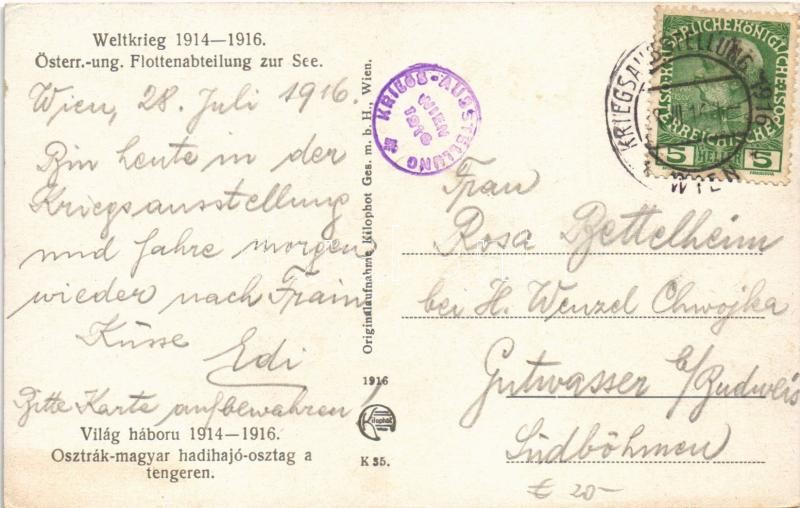 Weltkrieg 1914—1916.
Österr.-ung. Flottenabteilung zur See.
Wien, 28. Juli 1916.
Bin heute in der
Kriegsausstellung
und fahre morgen
wieder nach Frain
Küsse
Edi
Bitte Karte aufbewahren!
Világ háboru 1914—1916.
Osztrák-magyar hadihajó-osztag a
tengeren.
Originalaufnahme Kilophot Ges. m. b. H., Wien.
1916
Kilophot
K 35.
KRIEGS-AUSSTELLUNG
WIEN
1916
KRIEGSAUSSTELLUNG 1916
WIEN
KAISERLICHE KÖNIGLICHE
ÖSTERREICHISCHE POST
5 HELLER 5
Frau
Rosa Bettelheim
bei H. Wenzel Chwojka
Gutwasser b/Budweis
Südböhmen
€ 20-